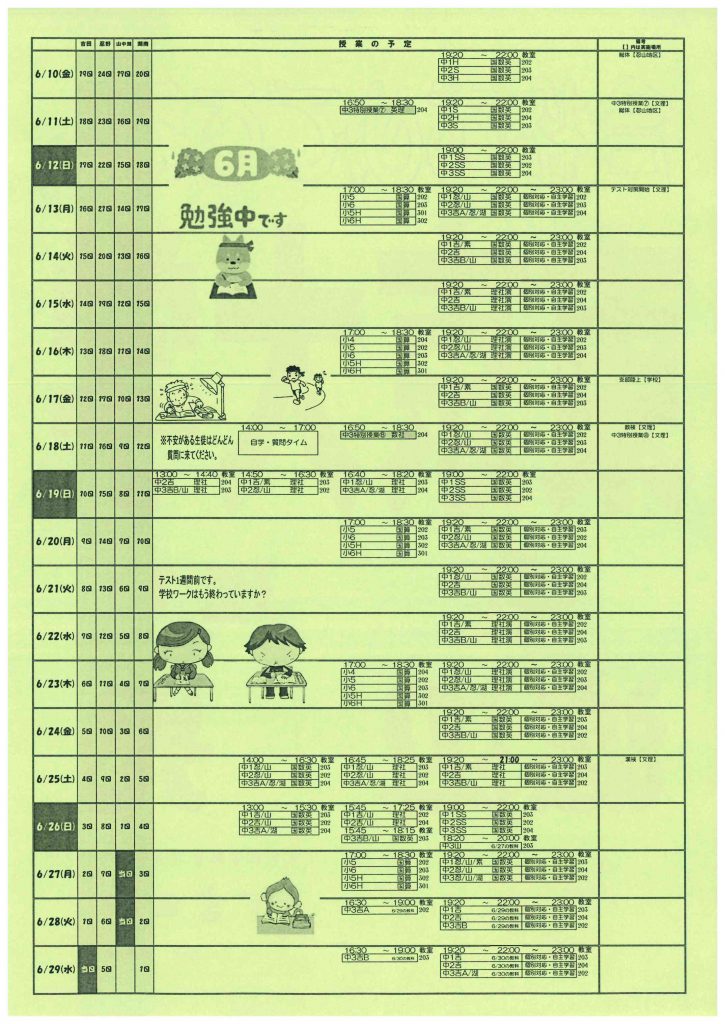 吉田 忍野 山中湖 湖南 授業の予定 備考
【 】内は実施場所
6/10(金) 19日 24日 19日 20日
19:20 ～ 22:00 教室
中1H 国数英 202
中2S 国数英 203
中3H 国数英 204
総体【忍山地区】
6/11(土) 18日 23日 16日 19日
16:50 ～ 18:30
中3特別授業⑦ 英理 204
19:20 ～ 22:00 教室
中1S 国数英 202
中2H 国数英 204
中3S 国数英 203
中3特別授業⑦【文理】
総体【忍山地区】
6/12(日) 17日 22日 15日 18日
6月
19:00 ～ 22:00 教室
中1SS 国数英 203
中2SS 国数英 202
中3SS 国数英 204
6/13(月) 16日 21日 14日 17日
勉強中です
17:00 ～ 18:30 教室
小5 国算 202
小6 国算 203
小5H 国算 301
小6H 国算 302
19:20 ～ 22:00 ～ 23:00 教室
中1忍/山 国数英 個別対応・自主学習 202
中2忍/山 国数英 個別対応・自主学習 203
中3吉A/忍/湖 国数英 個別対応・自主学習 204
テスト対策開始【文理】
6/14(火) 15日 20日 13日 16日
19:20 ～ 22:00 ～ 23:00 教室
中1吉/素 国数英 個別対応・自主学習 202
中2吉 国数英 個別対応・自主学習 204
中3吉B/山 国数英 個別対応・自主学習 203
6/15(水) 14日 19日 12日 15日
19:20 ～ 22:00 ～ 23:00 教室
中1吉/素 理社演 個別対応・自主学習 202
中2吉 理社演 個別対応・自主学習 204
中3吉B/山 理社演 個別対応・自主学習 203
6/16(木) 13日 18日 11日 14日
17:00 ～ 18:30 教室
小4 国算 204
小5 国算 202
小6 国算 203
小5H 国算 302
小6H 国算 301
19:20 ～ 22:00 ～ 23:00 教室
中1忍/山 理社演 個別対応・自主学習 202
中2忍/山 理社演 個別対応・自主学習 203
中3吉A/忍/湖 理社演 個別対応・自主学習 204
6/17(金) 12日 17日 10日 13日
19:20 ～ 22:00 ～ 23:00 教室
中1吉/素 国数英 個別対応・自主学習 202
中2吉 国数英 個別対応・自主学習 204
中3吉B/山 国数英 個別対応・自主学習 203
支部陸上【学校】
6/18(土) 11日 16日 9日 12日
※不安がある生徒はどんどん
質問に来てください。
14:00 ～ 17:00
自学・質問タイム
16:50 ～ 18:30
中3特別授業⑧ 数社 204
19:20 ～ 22:00 ～ 23:00 教室
中1忍/山 国数英 個別対応・自主学習 202
中2忍/山 国数英 個別対応・自主学習 203
中3吉A/忍/湖 国数英 個別対応・自主学習 204
数検【文理】
中3特別授業⑧【文理】
6/19(日) 10日 15日 8日 11日
13:00 ～ 14:40 教室
中2吉 理社 204
中3吉B/山 理社 203
14:50 ～ 16:30 教室
中1吉/素 理社 204
中2忍/山 理社 203
16:40 ～ 18:20 教室
中1忍/山 理社 203
中3吉A/忍/湖 理社 204
19:00 ～ 22:00 教室
中1SS 国数英 203
中2SS 国数英 202
中3SS 国数英 204
6/20(月) 9日 14日 7日 10日
17:00 ～ 18:30 教室
小5 国算 202
小6 国算 203
小5H 国算 302
小6H 国算 301
19:20 ～ 22:00 ～ 23:00 教室
中1吉/素 国数英 個別対応・自主学習 202
中2吉 国数英 個別対応・自主学習 203
中3吉A/忍/湖 国数英 個別対応・自主学習 204
6/21(火) 8日 13日 6日 9日
テスト1週間前です。
学校ワークはもう終わっていますか？
19:20 ～ 22:00 ～ 23:00 教室
中1忍/山 国数英 個別対応・自主学習 202
中2忍/山 国数英 個別対応・自主学習 204
中3吉B/山 国数英 個別対応・自主学習 203
6/22(水) 7日 12日 5日 8日
19:20 ～ 22:00 ～ 23:00 教室
中1吉/素 理社演 個別対応・自主学習 202
中2吉 理社演 個別対応・自主学習 204
中3吉B/山 理社演 個別対応・自主学習 203
6/23(木) 6日 11日 4日 7日
17:00 ～ 18:30 教室
小4 国算 204
小5 国算 202
小6 国算 203
小5H 国算 302
小6H 国算 301
19:20 ～ 22:00 ～ 23:00 教室
中1忍/山 理社演 個別対応・自主学習 202
中2忍/山 理社演 個別対応・自主学習 203
中3吉A/忍/湖 理社演 個別対応・自主学習 204
6/24(金) 5日 10日 3日 6日
19:20 ～ 22:00 ～ 23:00 教室
中1吉/素 国数英 個別対応・自主学習 202
中2吉 国数英 個別対応・自主学習 204
中3吉B/山 国数英 個別対応・自主学習 203
6/25(土) 4日 9日 2日 5日
14:00 ～ 16:30 教室
中1忍/山 国数英 203
中2忍/山 国数英 202
中3吉A/忍/湖 国数英 204
16:45 ～ 18:25 教室
中1忍/山 理社 203
中2忍/山 理社 202
中3吉A/忍/湖 理社 204
19:20 ～ 21:00 ～ 23:00 教室
中1吉/素 理社 個別対応・自主学習 204
中2吉 理社 個別対応・自主学習 202
中3吉B/山 理社 個別対応・自主学習 203
漢検【文理】
6/26(日) 3日 8日 1日 4日
13:00 ～ 15:30 教室
中1吉/山 国数英 203
中2吉/山 国数英 202
中3吉A/湖 国数英 204
15:45 ～ 17:25 教室
中1吉/山 理社 202
中2吉/山 理社 204
15:45 ～ 18:15 教室
中3吉B/山 国数英 203
19:00 ～ 22:00 教室
中1SS 国数英 203
中2SS 国数英 202
中3SS 国数英 204
18:20 ～ 20:00 教室
中3山 6/27の教科 203
6/27(月) 2日 7日 当日 3日
17:00 ～ 18:30 教室
小5 国算 202
小6 国算 203
小5H 国算 302
小6H 国算 301
19:20 ～ 22:00 ～ 23:00 教室
中1忍/山/素 国数英 個別対応・自主学習 202
中2忍/山 国数英 個別対応・自主学習 203
中3忍/山/湖 国数英 個別対応・自主学習 204
6/28(火) 1日 6日 当日 2日
16:30 ～ 19:00 教室
中3吉A 6/29の教科 202
19:20 ～ 22:00 ～ 23:00 教室
中1吉 6/29の教科 個別対応・自主学習 203
中2吉 6/29の教科 個別対応・自主学習 204
中3吉B 6/29の教科 個別対応・自主学習 202
6/29(水) 当日 5日 1日
16:30 ～ 19:00 教室
中3吉B 6/30の教科 203
19:20 ～ 22:00 ～ 23:00 教室
中1吉 6/30の教科 個別対応・自主学習 203
中2吉 6/30の教科 個別対応・自主学習 204
中3吉A/湖 6/30の教科 個別対応・自主学習 202